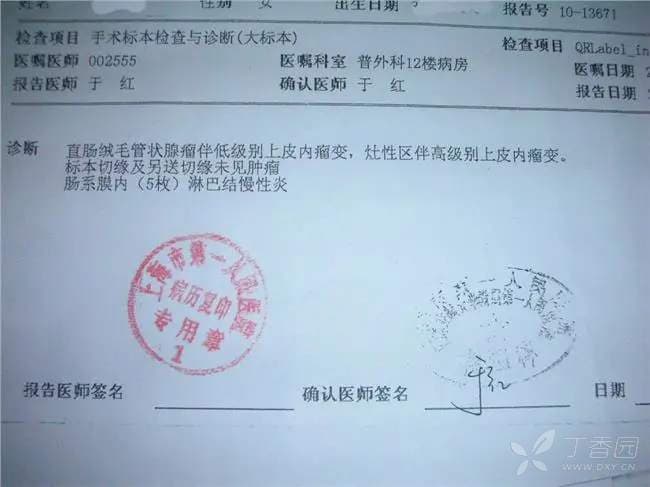 姓名 性别 女 出生日期 报告号 10-13671
检查项目 手术标本检查与诊断(大标本) 检查项目 QRLabel_in
医嘱医师 002555 医嘱科室 普外科12楼病房 医嘱日期 2
报告医师 于 红 确认医师 于 红 报告日期 2
诊断 直肠绒毛管状腺瘤伴低级别上皮内瘤变，灶性区伴高级别上皮内瘤变。
标本切缘及另送切缘未见肿瘤
肠系膜内（5枚）淋巴结慢性炎
上海市第一人民医院
病历复印
专用章
1
第一人民
报告医师签名 确认医师签名 于红 日期
丁香园
WWW.DXY.CN